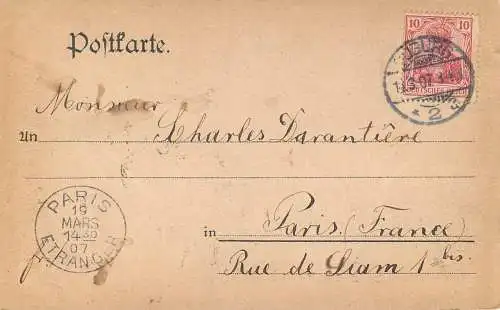 Postkarte.
10
DEUTSCHES REICH
07
* 2
Monsieur
An Charles Darantière
PARIS
19
MARS
14 30
07
ETRANGER
in Paris. (France)
Rue de Siam 1 bis.